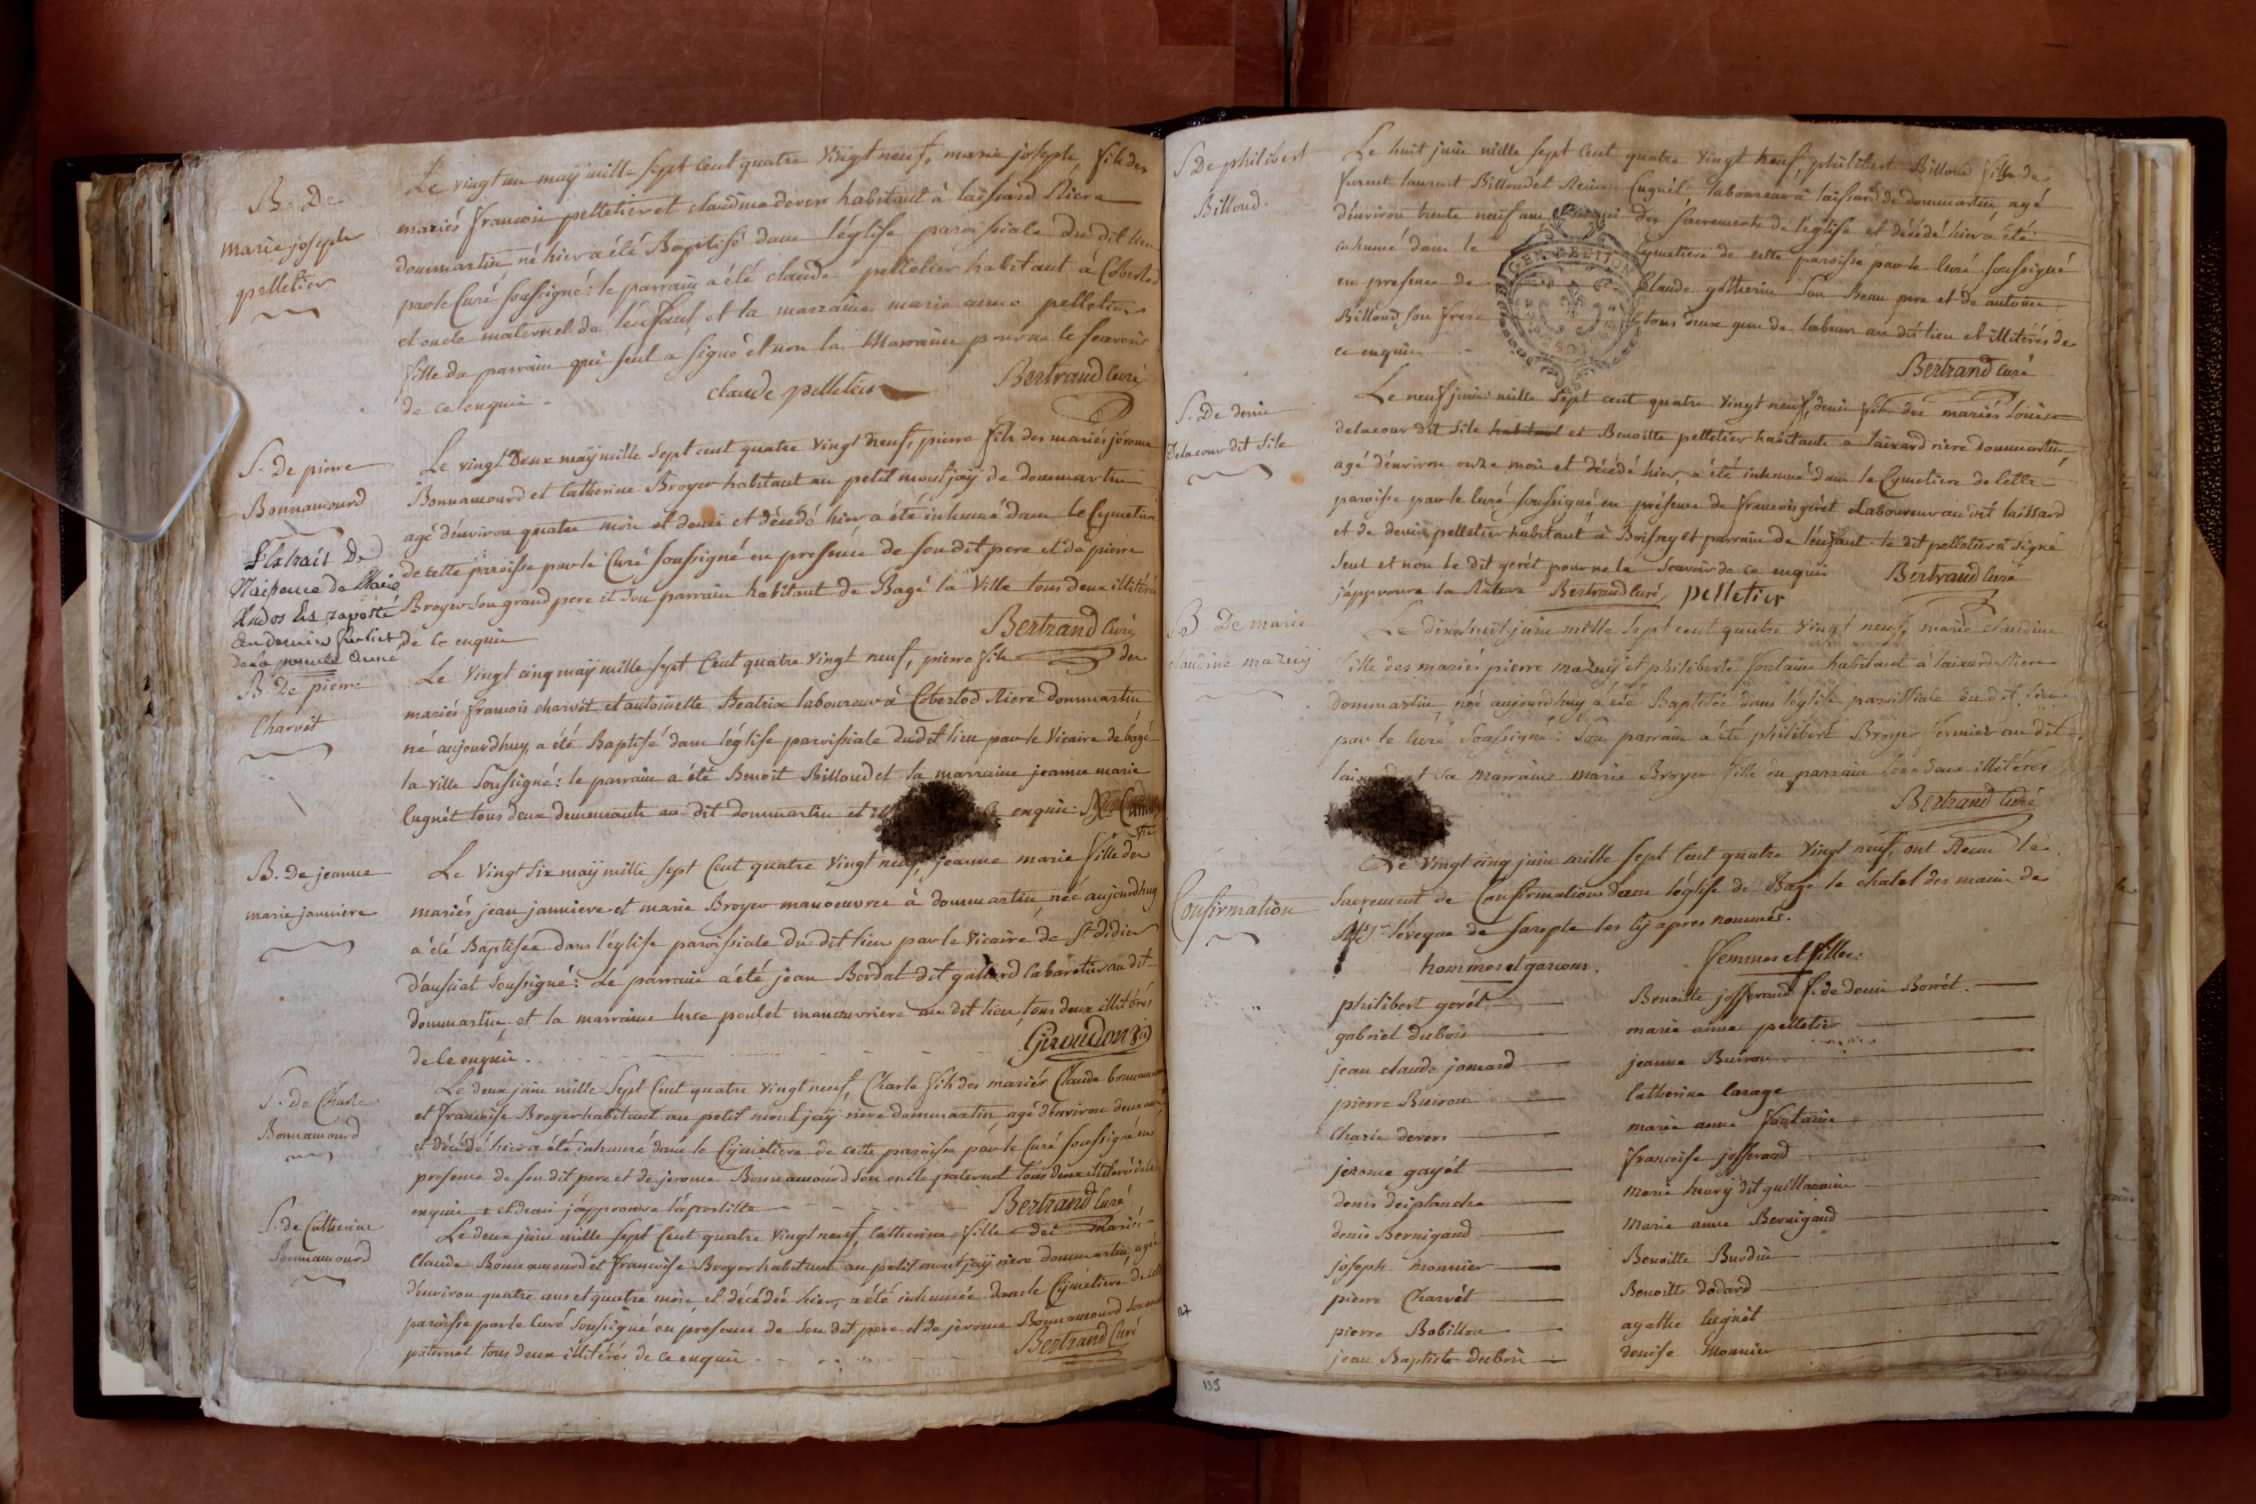 B. De
marie joseph
pelletier
Le vingt un maÿ mille sept cent quatre vingt neuf, marie joseph, fils des
mariés francois pelletier et claudine devers habitant à laissard Riere
dommartin né hier a été Baptisé dans l'église paroissiale du dit lieu
par le Curé soussigné: le parrain a été claude pelletier habitant à Cobertod
et oncle maternel de l'enfant et la marraine marie anne pelletier
fille du parrain qui seul a signé et non la Marraine pour ne le scavoir
de ce enquis -
claude pelletier Bertrand Curé
S. de pierre
Bonnamourd
Le vingt Deux maÿ mille sept cent quatre vingt neuf, pierre fils des mariés jérome
Bonnamourd et Catherine Broyer habitant au petit montjaÿ de dommartin
agé d'environ quatre mois et demi et décédé hier a été inhumé dans le Cymetiere
de cette paroisse par le Curé soussigné en presence de son dit pere et de pierre
Broyer son grand pere et son parrain habitant de Bagé la Ville tous deux illitérés
de ce enquis
Bertrand Curé
L'Extrait De
Naissance de Marie
Est raporté
au dernier feuliet
de la presente année
B De pierre
Charvèt
Le Vingt cinq maÿ mille sept Cent quatre vingt neuf, pierre fils des
mariés francois charvèt et antoinette Beatrix laboureur à Cobertod Riere dommartin
né aujourdhuy, a été Baptisé dans l'église paroissiale du dit lieu par le Vicaire de bagé
la ville soussigné: le parrain a été Benoit Billoud et la marraine jeanne marie
Cugnèt tous deux demeurants au dit dommartin et enquis:
B. de jeanne
marie janniere
Le Vingt six maÿ mille sept Cent quatre vingt neuf, jeanne marie fille des
mariés jean janniere et marie Broyer manoeuvres à dommartin, née aujourdhuy
a été Baptisée dans l'église paroissiale du dit lieu par le Vicaire de St didier
d'aussiat soussigné: Le parrain a été jean Bordat dit gallard cabaretier au dit
dommartin, et la marraine luce poulet manoeuvriere au dit lieu, tous deux illitérés
de ce enquis.
Giroudon
S. de Charle
Bonnamourd
Le deux juin mille Sept Cent quatre vingt neuf, Charle fils des mariés Claude bonnamourd
et francoise Broyer habitant au petit montjaÿ riere dommartin, agé d'environ deux ans
et décédé hier a été inhumé dans le Cÿmetiere de cette paroisse par le Curé soussigné en
presence de son dit pere et de jerome Bonnamourd son oncle paternel tous deux illitérés de ce
enquis + et demi j'approuve l'apostille
Bertrand Curé
S. de Catherine
Bonnamourd
Le deux juin mille sept Cent quatre vingt neuf, Catherine fille des mariés
Claude Bonnamourd et francoise Broyer habitant au petit montjaÿ riere dommartin, agé
d'environ quatre ans et quatre mois, et décédée hier, a été inhumée dans le Cymetiere de cette
paroisse par le Curé soussigné en presence de son dit pere et de jérome Bonnamourd son oncle
paternel tous deux illitérés de ce enquis
Bertrand Curé
S De philibert
Billoud.
Le huit juin mille sept Cent quatre vingt neuf, philibert Billoud fils de
furent laurent Billoud et Reine Cugnèt laboureur à laissard de dommartin agé
d'environ trente neuf ans des Sacrements de l'église et décédé hier a été
inhumé dans le Cymetiere de cette paroisse par le Curé soussigné
en presence de Claude son Beau pere et de antoine
Billoud son frere tous deux gens de labeur au dit lieu et illitérés de
ce enquis
Bertrand Curé
GEN
S. De denis
Delacour dit Sile
Le neuf juin mille sept cent quatre vingt neuf, denis fils des mariés Louis
delacour dit Sile habitant et Benoitte pelletier habitants a laixard riere dommartin
agé d'environ onze mois et décédé hier, a été inhumé dans le Cymetiere de Cette
paroisse par le Curé soussigné en présence de francois gérèt Laboureur au dit laissard
et de denis pelletier habitant à Boissey et parrain de l'enfant le dit pelletier a signé
seul et non le dit gerèt pour ne le Scavoir de ce enquis Bertrand Curé
j'approuve la Rature Bertrand Curé, pelletier
B De marie
claudine mazuÿ
Le dix neuf juin mille sept cent quatre vingt neuf, marie claudine
fille des mariés pierre mazuÿ et philiberte fontaine habitant à laixard Riere
dommartin, née aujourdhuy a été Baptisée dans l'église paroissiale du dit lieu
par le Curé Soussigné: Son parrain a été philibert Broyer fermier au dit
et sa marraine marie Broyer fille du parrain tous deux illitérés
Bertrand Curé
Confirmation
Le vingt cinq juin mille sept Cent quatre vingt neuf, ont Recu le
Sacrement de Confirmation dans l'église de Bagé le chatel des mains de
l'éveque de Sarepte les Cy apres nommés.
hommes et garcons.
femmes et filles:
philibert gerèt
Benoitte josserand f. de denis Borrèt.
gabriel dubois
marie anne pelletier
jean claude jomard
jeanne Buiron
pierre Buiron
Catherine Carage
Charle devers
marie anne fontaine
jerome gayèt
francoise josserand
denis desplanche
marie henrÿ dit guillaumin
denis Bernigaud
Marie anne Bernigaud
joseph monnier
Benoitte Burdin
pierre Charvèt
Benoitte dodard
pierre Bobillon
agathe Cugnèt
jean Baptiste dubois
denise Monnier
127
135